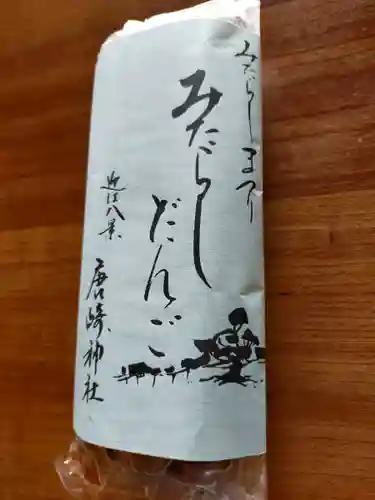 みたらしまつり
みたらしだんご
近江八景
唐崎神社